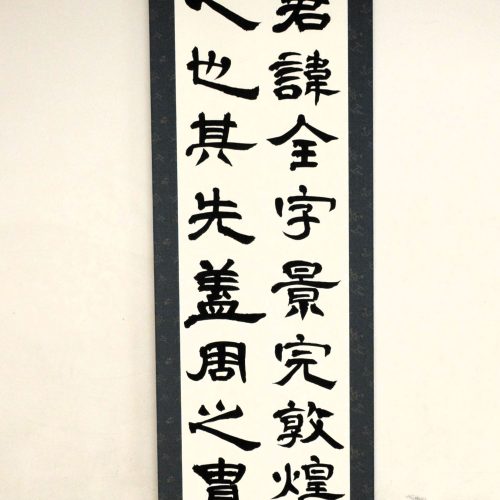 君諱全字景完敦煌
人也其先蓋周之冑